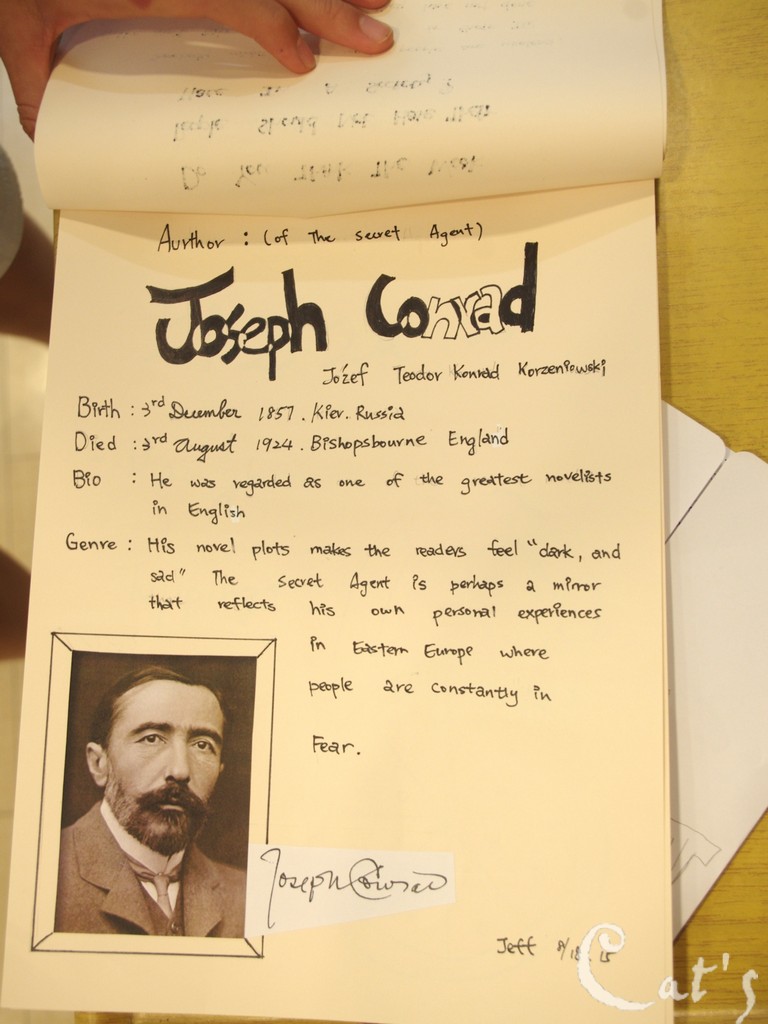 Do You Think The West
People Should Not Have Then
Have In A Society?
Aurthor : (of The secret Agent)
Joseph Conrad
Józef Teodor Konrad Korzeniowski
Birth : 3rd December 1857. Kiev. Russia
Died : 3rd August 1924. Bishopsbourne England
Bio : He was regarded as one of the greatest novelists
in English
Genre : His novel plots makes the readers feel "dark, and
sad" The Secret Agent is perhaps a mirror
that reflects his own personal experiences
in Eastern Europe where
people are constantly in
Fear.
Joseph Conrad
Jeff 8/18. 15
Cat's